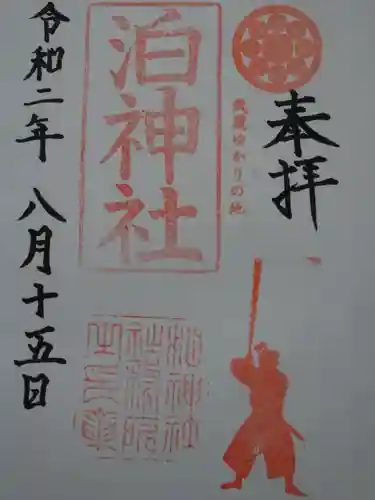 奉拝
武蔵ゆかりの地
泊神社
令和二年 八月十五日